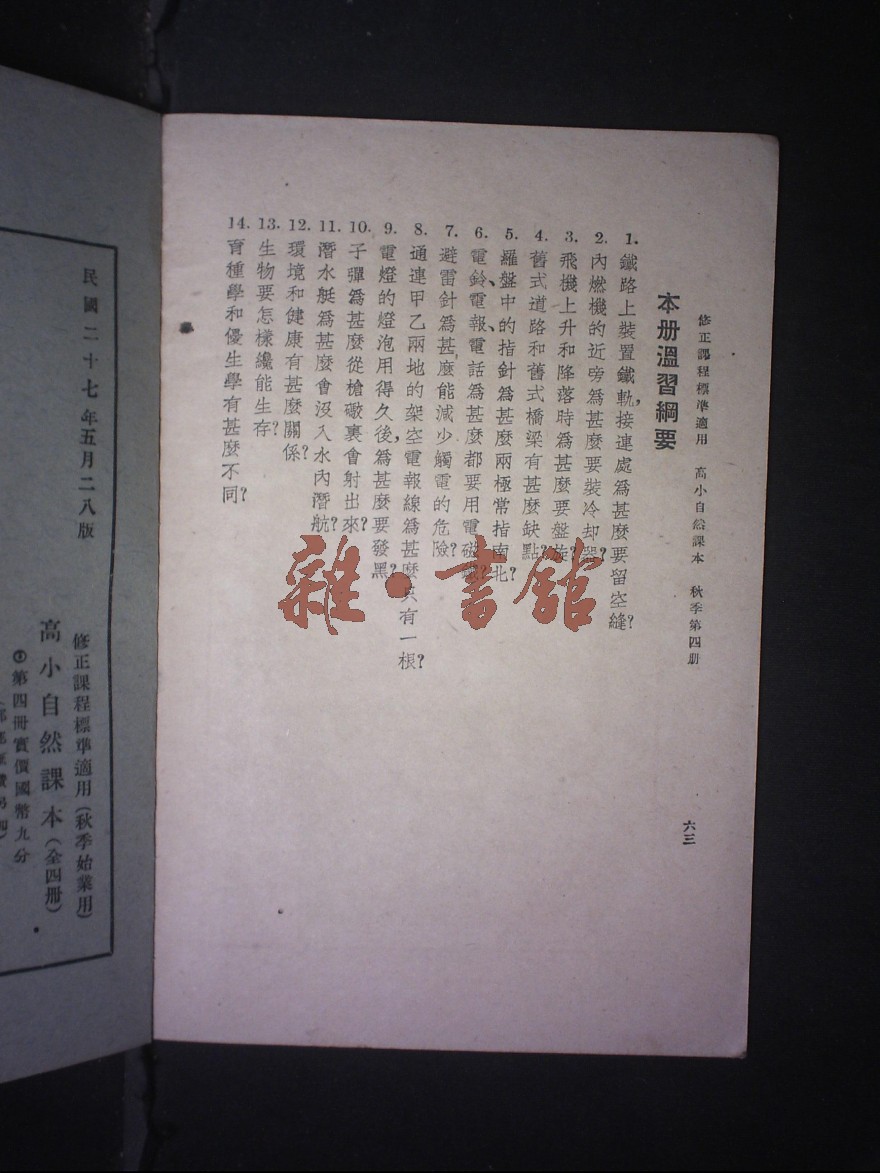 修正課程標準適用 高小自然課本 秋季第四册
六三
本册溫習綱要
1. 鐵路上裝置鐵軌,接連處爲甚麼要留空縫?
2. 內燃機的近旁爲甚麼要裝冷却器?
3. 飛機上升和降落時爲甚麼要盤旋?
4. 舊式道路和舊式橋梁有甚麼缺點?
5. 羅盤中的指針爲甚麼兩極常指南北?
6. 電鈴、電報、電話爲甚麼都要用電磁鐵?
7. 避雷針爲甚麼能減少觸電的危險?
8. 通連甲乙兩地的架空電報線爲甚麼只有一根?
9. 電燈的燈泡用得久後,爲甚麼要發黑?
10. 子彈爲甚麼從槍礮裏會射出來?
11. 潛水艇爲甚麼會沒入水內潛航?
12. 環境和健康有甚麼關係?
13. 生物要怎樣纔能生存?
14. 育種學和優生學有甚麼不同?
雜·書館
民國二十七年五月二八版
修正課程標準適用(秋季始業用)
高小自然課本(全四册)
第四冊實價國幣九分